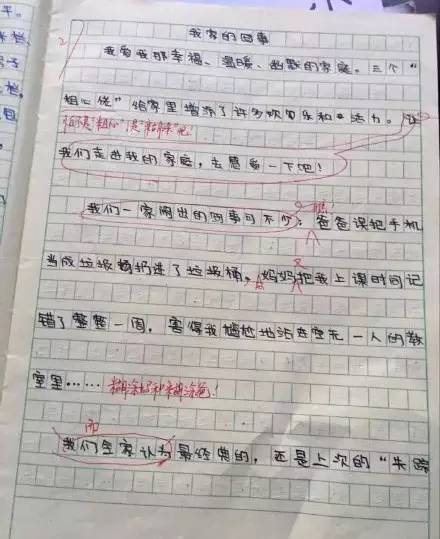 我家的囧事
我有我那幸福、温暖、幽默的家庭。三个“
粗心佬”给家里增添了许多欢乐和活力。让
我们走进我的家庭，去感受一下吧！
我们一家闹出的囧事可不少：爸爸误把手机
瞧！
当成垃圾扔进了垃圾桶，妈妈把我上课时间记
又
错了整整一周，害得我尴尬地站在空无一人的教
室里……
糊涂妈和糊涂爸！
而
我们全家认为最经典的，还是上次的“失踪